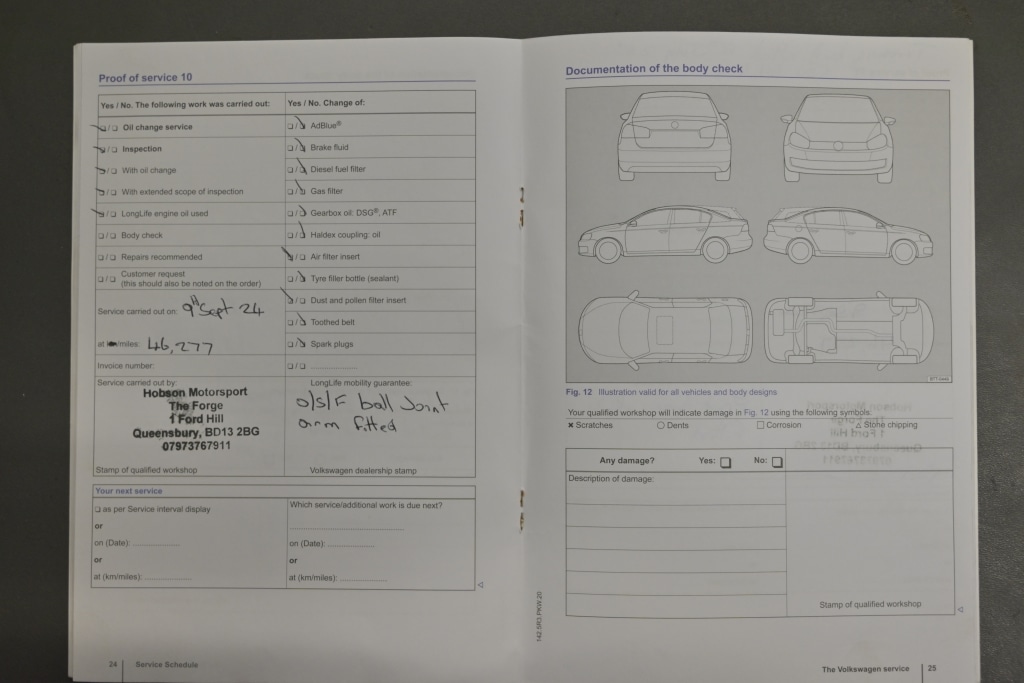 Proof of service 10
Yes / No. The following work was carried out:
Yes / No. Change of:
❏ / ❏ Oil change service
❏ / ❏ AdBlue®
❏ / ❏ Inspection
❏ / ❏ Brake fluid
❏ / ❏ With oil change
❏ / ❏ Diesel fuel filter
❏ / ❏ With extended scope of inspection
❏ / ❏ Gas filter
❏ / ❏ LongLife engine oil used
❏ / ❏ Gearbox oil: DSG®, ATF
❏ / ❏ Body check
❏ / ❏ Haldex coupling: oil
❏ / ❏ Repairs recommended
❏ / ❏ Air filter insert
❏ / ❏ Customer request
(this should also be noted on the order)
❏ / ❏ Tyre filler bottle (sealant)
❏ / ❏ Dust and pollen filter insert
Service carried out on: 9th Sept 24
❏ / ❏ Toothed belt
at km/miles: 46,277
❏ / ❏ Spark plugs
Invoice number:
❏ / ❏ ....................
Service carried out by:
Hobson Motorsport
The Forge
1 Ford Hill
Queensbury, BD13 2BG
07973767911
Stamp of qualified workshop
LongLife mobility guarantee:
O/S/F ball Joint
arm fitted
Volkswagen dealership stamp
Your next service
❏ as per Service interval display
or
on (Date): ....................
or
at (km/miles): ....................
Which service/additional work is due next?
on (Date): ....................
or
at (km/miles): ....................
24 Service Schedule
142.5R3.PKW.20
Documentation of the body check
Fig. 12 Illustration valid for all vehicles and body designs
Your qualified workshop will indicate damage in Fig. 12 using the following symbols:
× Scratches ○ Dents □ Corrosion △ Stone chipping
Any damage? Yes: ❏ No: ❏
Description of damage:
Stamp of qualified workshop
The Volkswagen service 25